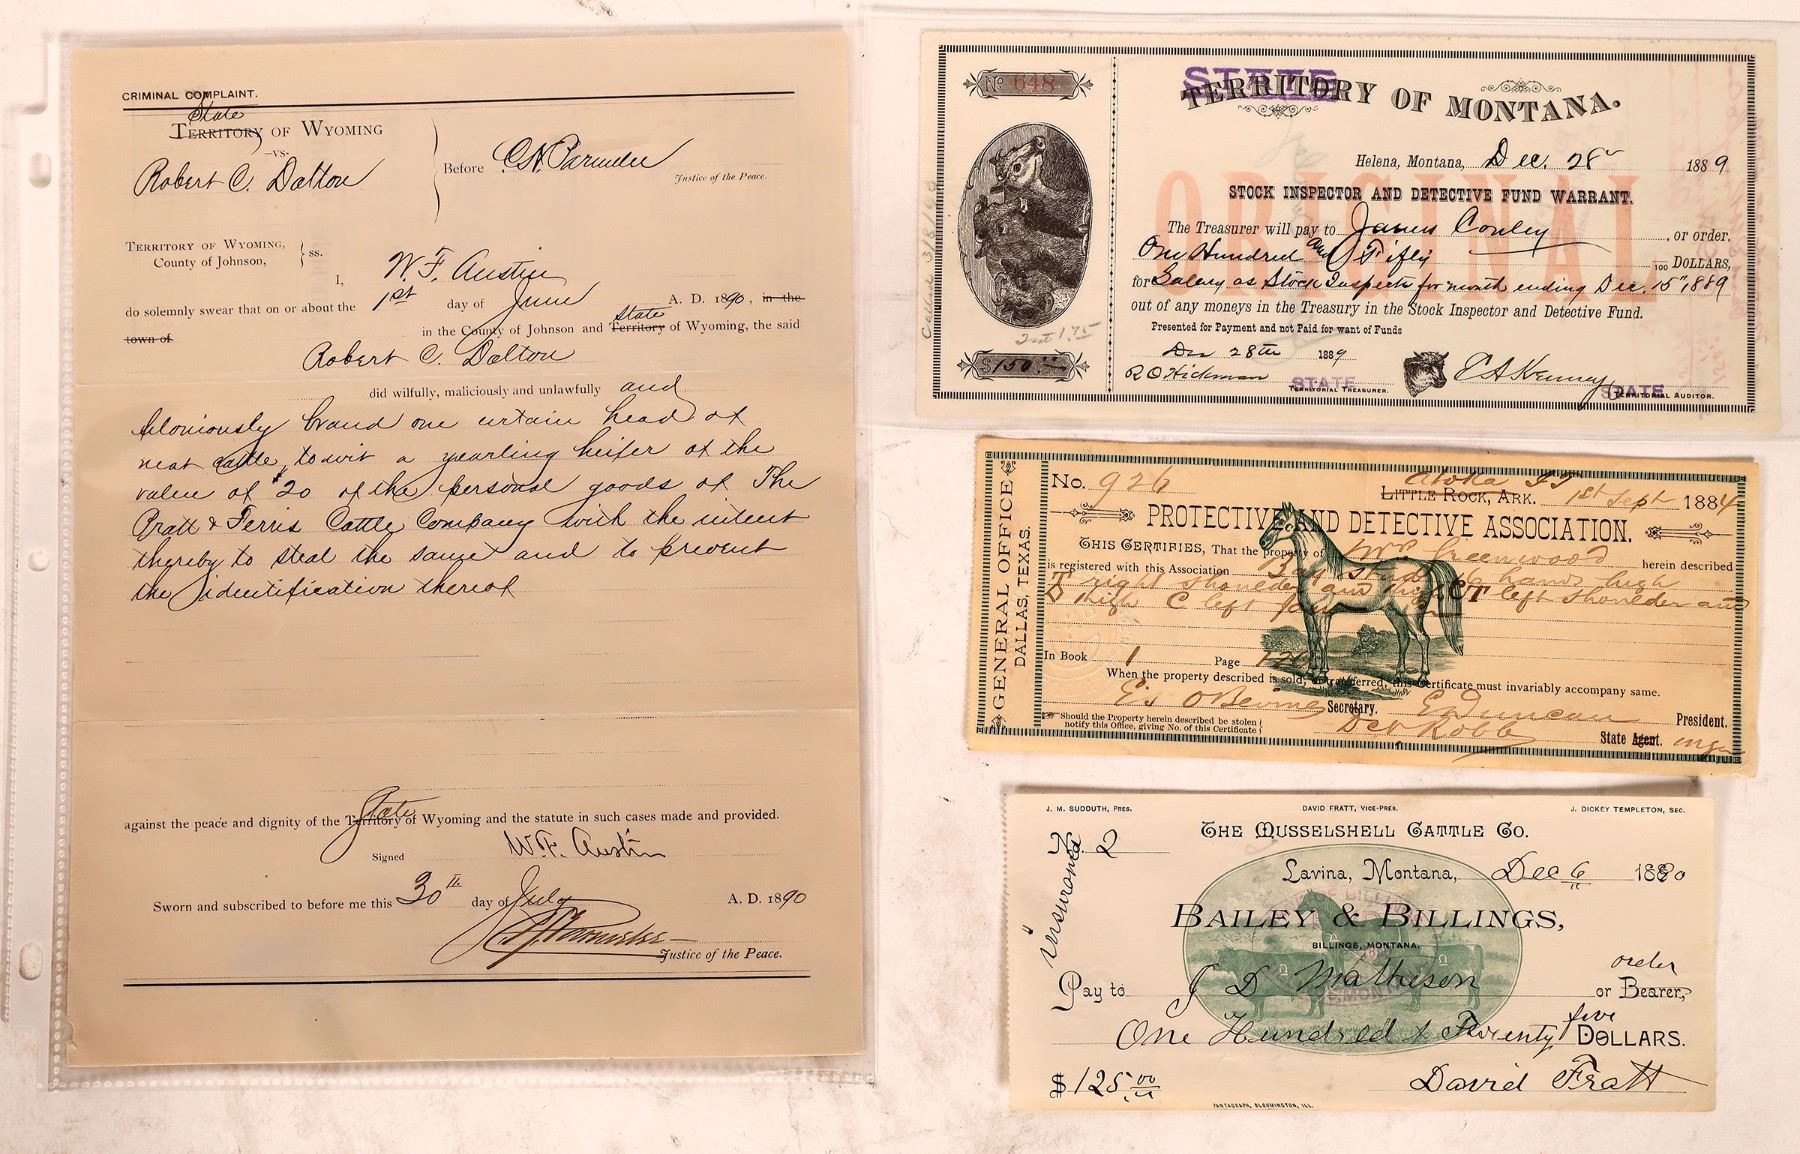 CRIMINAL COMPLAINT.
State
Territory of Wyoming
-vs-
Robert C. Dalton
Before C. H. Parmelee
Justice of the Peace.
Territory of Wyoming,
County of Johnson,
ss.
I, W. F. Austin
do solemnly swear that on or about the 1st day of June A. D. 1890, in the
town of in the County of Johnson and State Territory of Wyoming, the said
Robert C. Dalton
did wilfully, maliciously and unlawfully and
feloniously brand one certain head of
neat cattle, to wit a yearling heifer of the
value of $20 of the personal goods of The
Pratt & Ferris Cattle Company with the intent
thereby to steal the same and to prevent
the identification thereof
against the peace and dignity of the State Territory of Wyoming and the statute in such cases made and provided.
Signed W. F. Austin
Sworn and subscribed to before me this 30th day of July A. D. 1890
Justice of the Peace.
No 648
STATE
TERRITORY OF MONTANA.
Helena, Montana, Dec. 28th 1889
STOCK INSPECTOR AND DETECTIVE FUND WARRANT.
ORIGINAL
The Treasurer will pay to James Conley, or order,
One Hundred and Fifty 100 DOLLARS,
for Salary as Stock Inspector for month ending Dec. 15th 1889
out of any moneys in the Treasury in the Stock Inspector and Detective Fund.
Presented for Payment and not Paid for want of Funds
Dec 28th 1889
$150.00
R O Hickman STATE TERRITORIAL TREASURER.
E A Kenney STATE TERRITORIAL AUDITOR.
GENERAL OFFICE
DALLAS, TEXAS.
No. 926
Atoka I T
Little Rock, Ark. 1st Sept 1884
PROTECTIVE AND DETECTIVE ASSOCIATION.
THIS CERTIFIES, That the property of Wm Greenwood herein described
is registered with this Association Bay Stud 16 hands high
right shoulder and thigh CT left shoulder and
thigh C left jaw
In Book 1 Page 120
When the property described is sold, or transferred, this Certificate must invariably accompany same.
Secretary. E Duncan President.
Should the Property herein described be stolen
notify this Office, giving No. of this Certificate
Geo Robb State Agent.
J. M. SUDDUTH, Pres. DAVID FRATT, Vice-Pres. J. DICKEY TEMPLETON, Sec.
THE MUSSELSHELL CATTLE CO.
No. 2
insurance
Lavina, Montana, Dec 6 1890
BAILEY & BILLINGS,
BILLINGS, MONTANA.
order
Pay to J D Matheson or Bearer,
One Hundred & Twenty five DOLLARS.
$125.00
David Fratt
PANTAGRAPH, BLOOMINGTON, ILL.